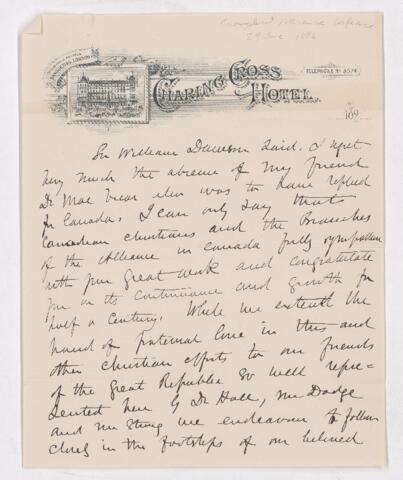 29 June 1896
CHARING CROSS
HOTEL.
TELEPHONE No 8574
189
Sir William Dawson said. I regret
very much the absence of my friend
Dr Mac Vicar who was to have replied
for Canada. I can only say that
Canadian christians and the Branches
of the Alliance in Canada fully sympathise
with your great work and congratulate
you on its continuance and growth for
half a century. While we extend the
hand of fraternal love in this and
other christian efforts to our friends
of the Great Republic so well repre-
sented here by Dr Hall, Mr Dodge
and Mr Strong we endeavour to follow
closely in the footsteps of our beloved